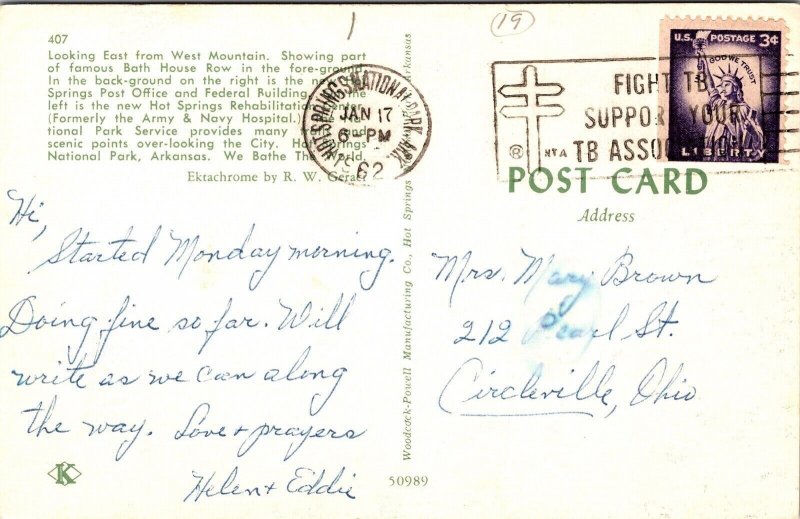 1
19
407
Looking East from West Mountain. Showing part
of famous Bath House Row in the fore-ground.
In the back-ground on the right is the new
Springs Post Office and Federal Building. the
left is the new Hot Springs Rehabilitation
(Formerly the Army & Navy Hospital.)
tional Park Service provides many and
scenic points over-looking the City. Hot
National Park, Arkansas. We Bathe The World.
Ektachrome by R. W.
HOT SPRINGS NATIONAL PARK, ARK.
JAN 17
6-PM
1962
FIGHT TB
SUPPORT YOUR
TB
®
NTA
U.S. POSTAGE 3¢
IN GOD WE TRUST
LIBERTY
POST CARD
Address
Hi,
Started Monday morning.
Doing fine so far. Will
write as we can along
the way. Love + prayers
Helen + Eddie
Mrs. Mary Brown
212 Pearl St.
Circleville, Ohio
Woodcock-Powell Manufacturing Co., Hot Springs Arkansas
K
50989